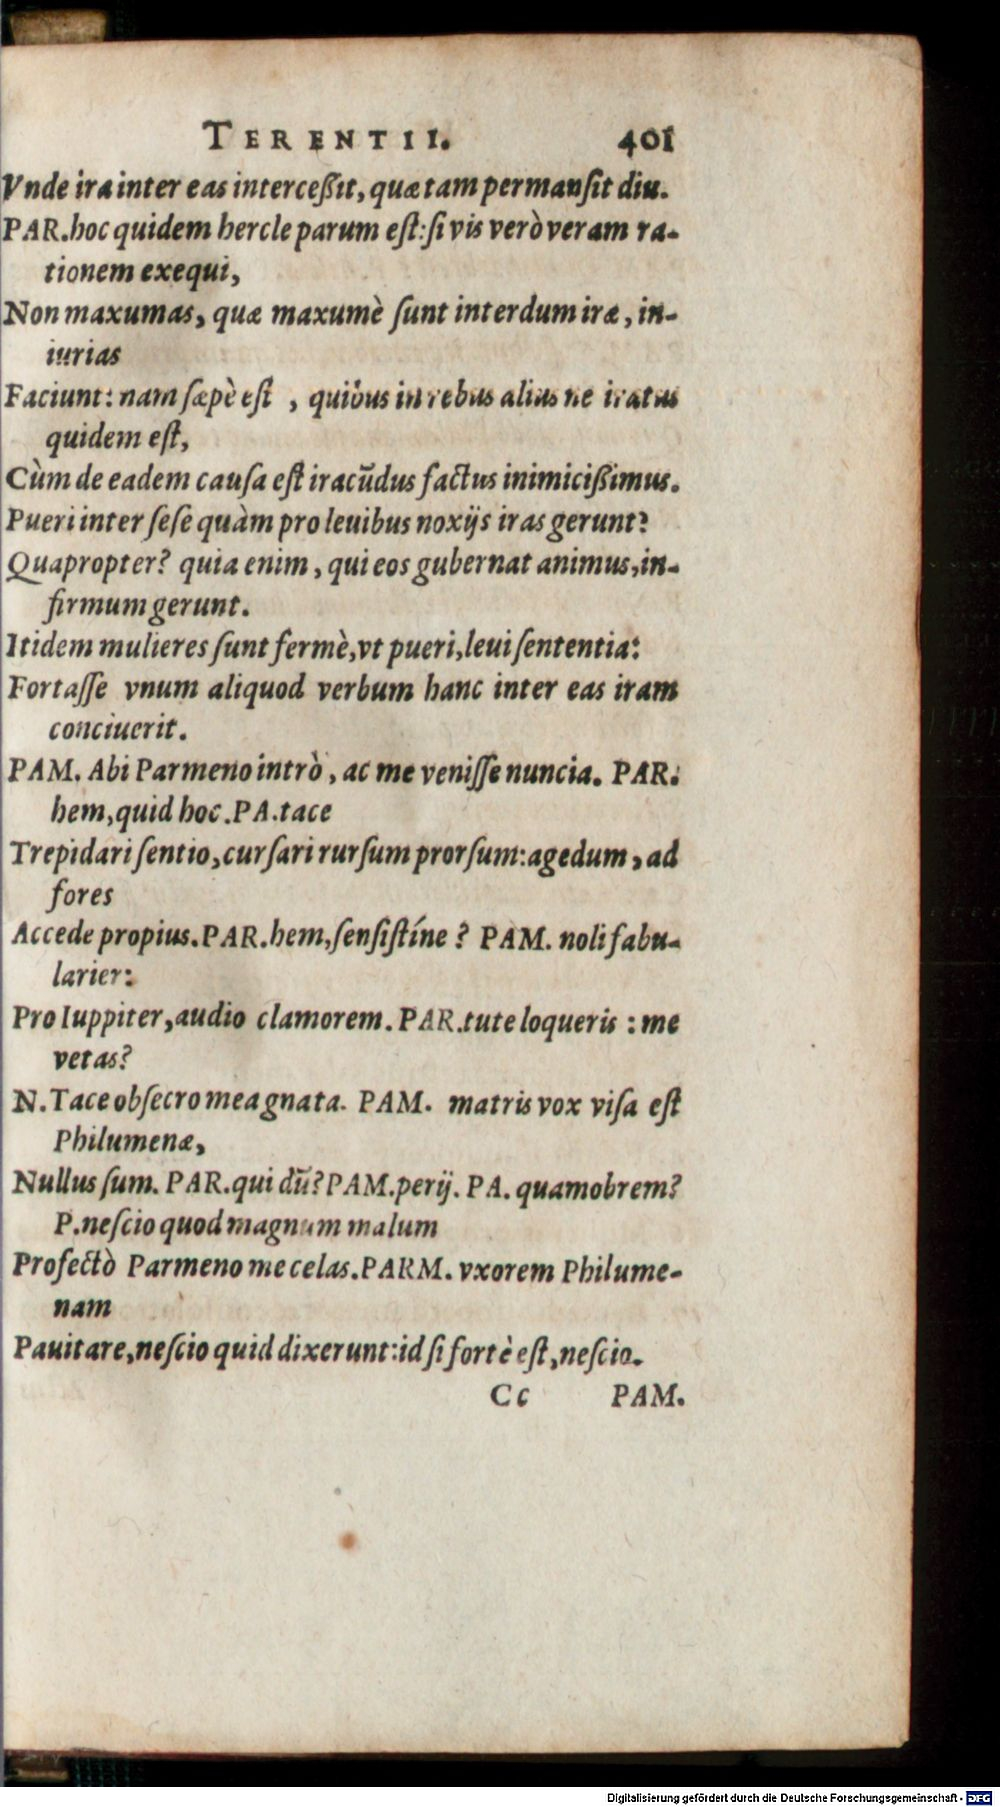 TERENTII. 401
Vnde ira inter eas interceßit, quæ tam permansit diu.
PAR. hoc quidem hercle parum est: si vis verò veram ra-
tionem exequi,
Non maxumas, quæ maxumè sunt interdum iræ, in-
iurias
Faciunt: nam sæpè est , quibus in rebus alius ne iratus
quidem est,
Cùm de eadem causa est iracūdus factus inimicißimus.
Pueri inter sese quàm pro leuibus noxijs iras gerunt?
Quapropter? quia enim, qui eos gubernat animus, in-
firmum gerunt.
Itidem mulieres sunt fermè, vt pueri, leui sententia:
Fortasse vnum aliquod verbum hanc inter eas iram
conciuerit.
PAM. Abi Parmeno intrò, ac me venisse nuncia. PAR.
hem, quid hoc. PA. tace
Trepidari sentio, cursari rursum prorsum: agedum, ad
fores
Accede propius. PAR. hem, sensistíne? PAM. noli fabu-
larier:
Pro Iuppiter, audio clamorem. PAR. tute loqueris: me
vetas?
N. Tace obsecro mea gnata. PAM. matris vox visa est
Philumenæ,
Nullus sum. PAR. qui dū? PAM. perij. PA. quamobrem?
P. nescio quod magnum malum
Profectò Parmeno me celas. PARM. vxorem Philume-
nam
Pauitare, nescio quid dixerunt: id si fortè est, nescio.
Cc PAM.
Digitalisierung gefördert durch die Deutsche Forschungsgemeinschaft - DFG